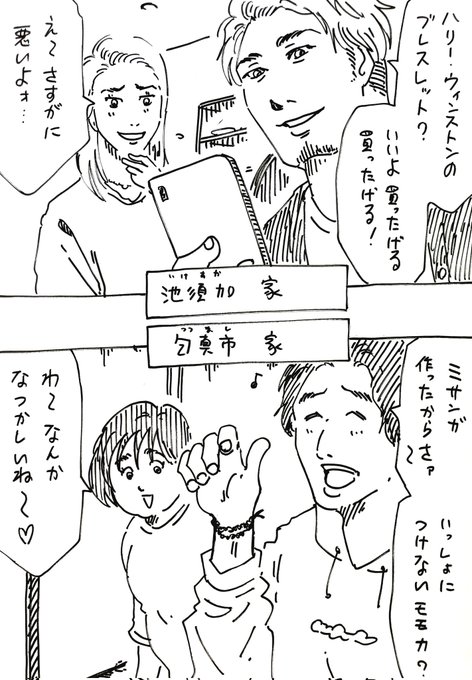 ハリー・ウィンストンの
ブレスレット？
いいよ 買ったげる
買ったげる！
え〜 さすがに
悪いよォ…
いけすか
池須加 家
つつまし
匂真市 家
ミサンガ
作ったからさァ〜
いっしょに
つけないモモカ？
わ〜 なんか
なつかしいね〜♡